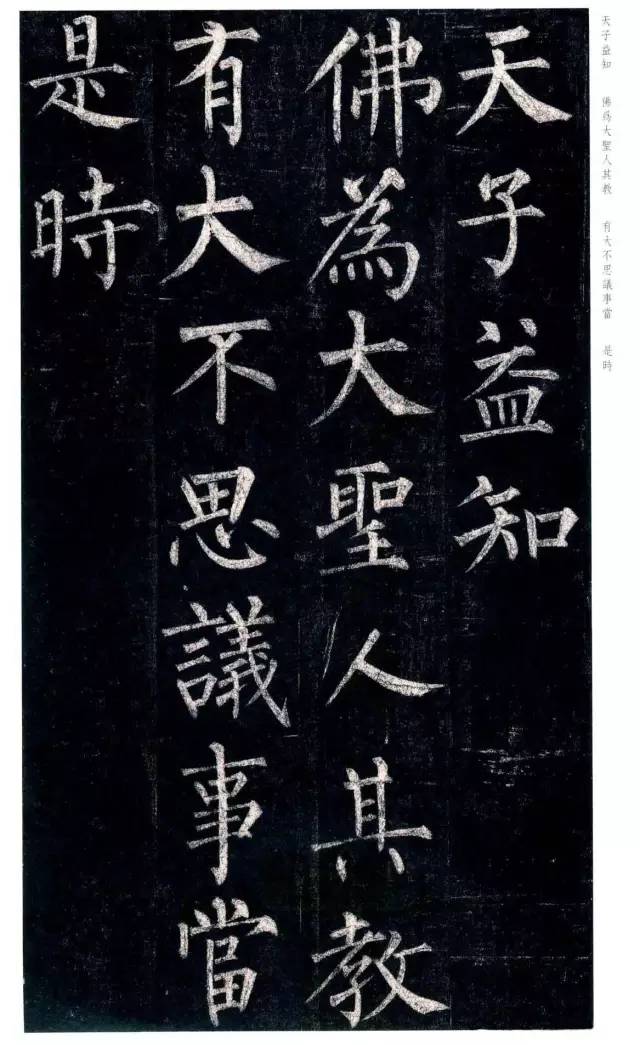 天子益知
佛為大聖人其教
有大不思議事當
是時
天子益知 佛爲大聖人其教 有大不思議事當 是時